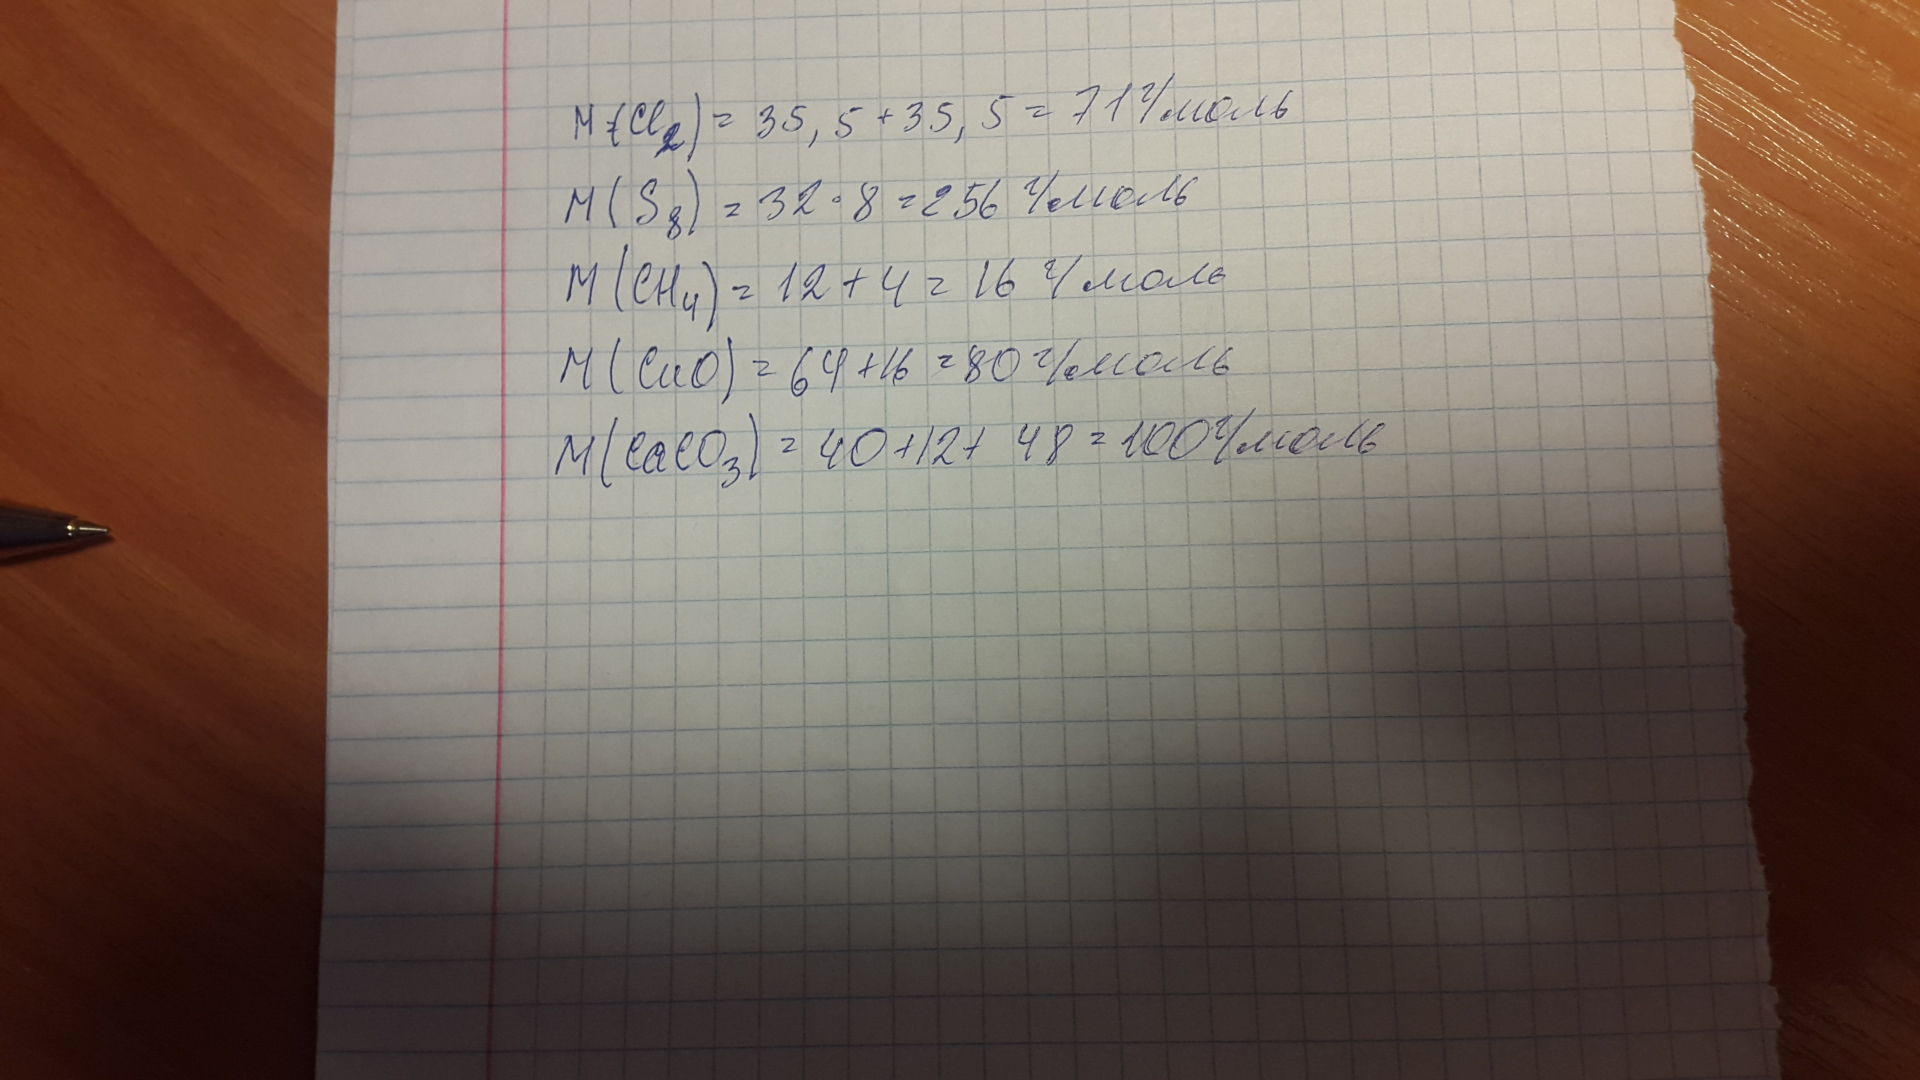 M(Cl₂) = 35,5 + 35,5 = 71 г/моль
M(S₈) = 32·8 = 256 г/моль
M(CH₄) = 12 + 4 = 16 г/моль
M(CuO) = 64 + 16 = 80 г/моль
M(CaCO₃) = 40 + 12 + 48 = 100 г/моль